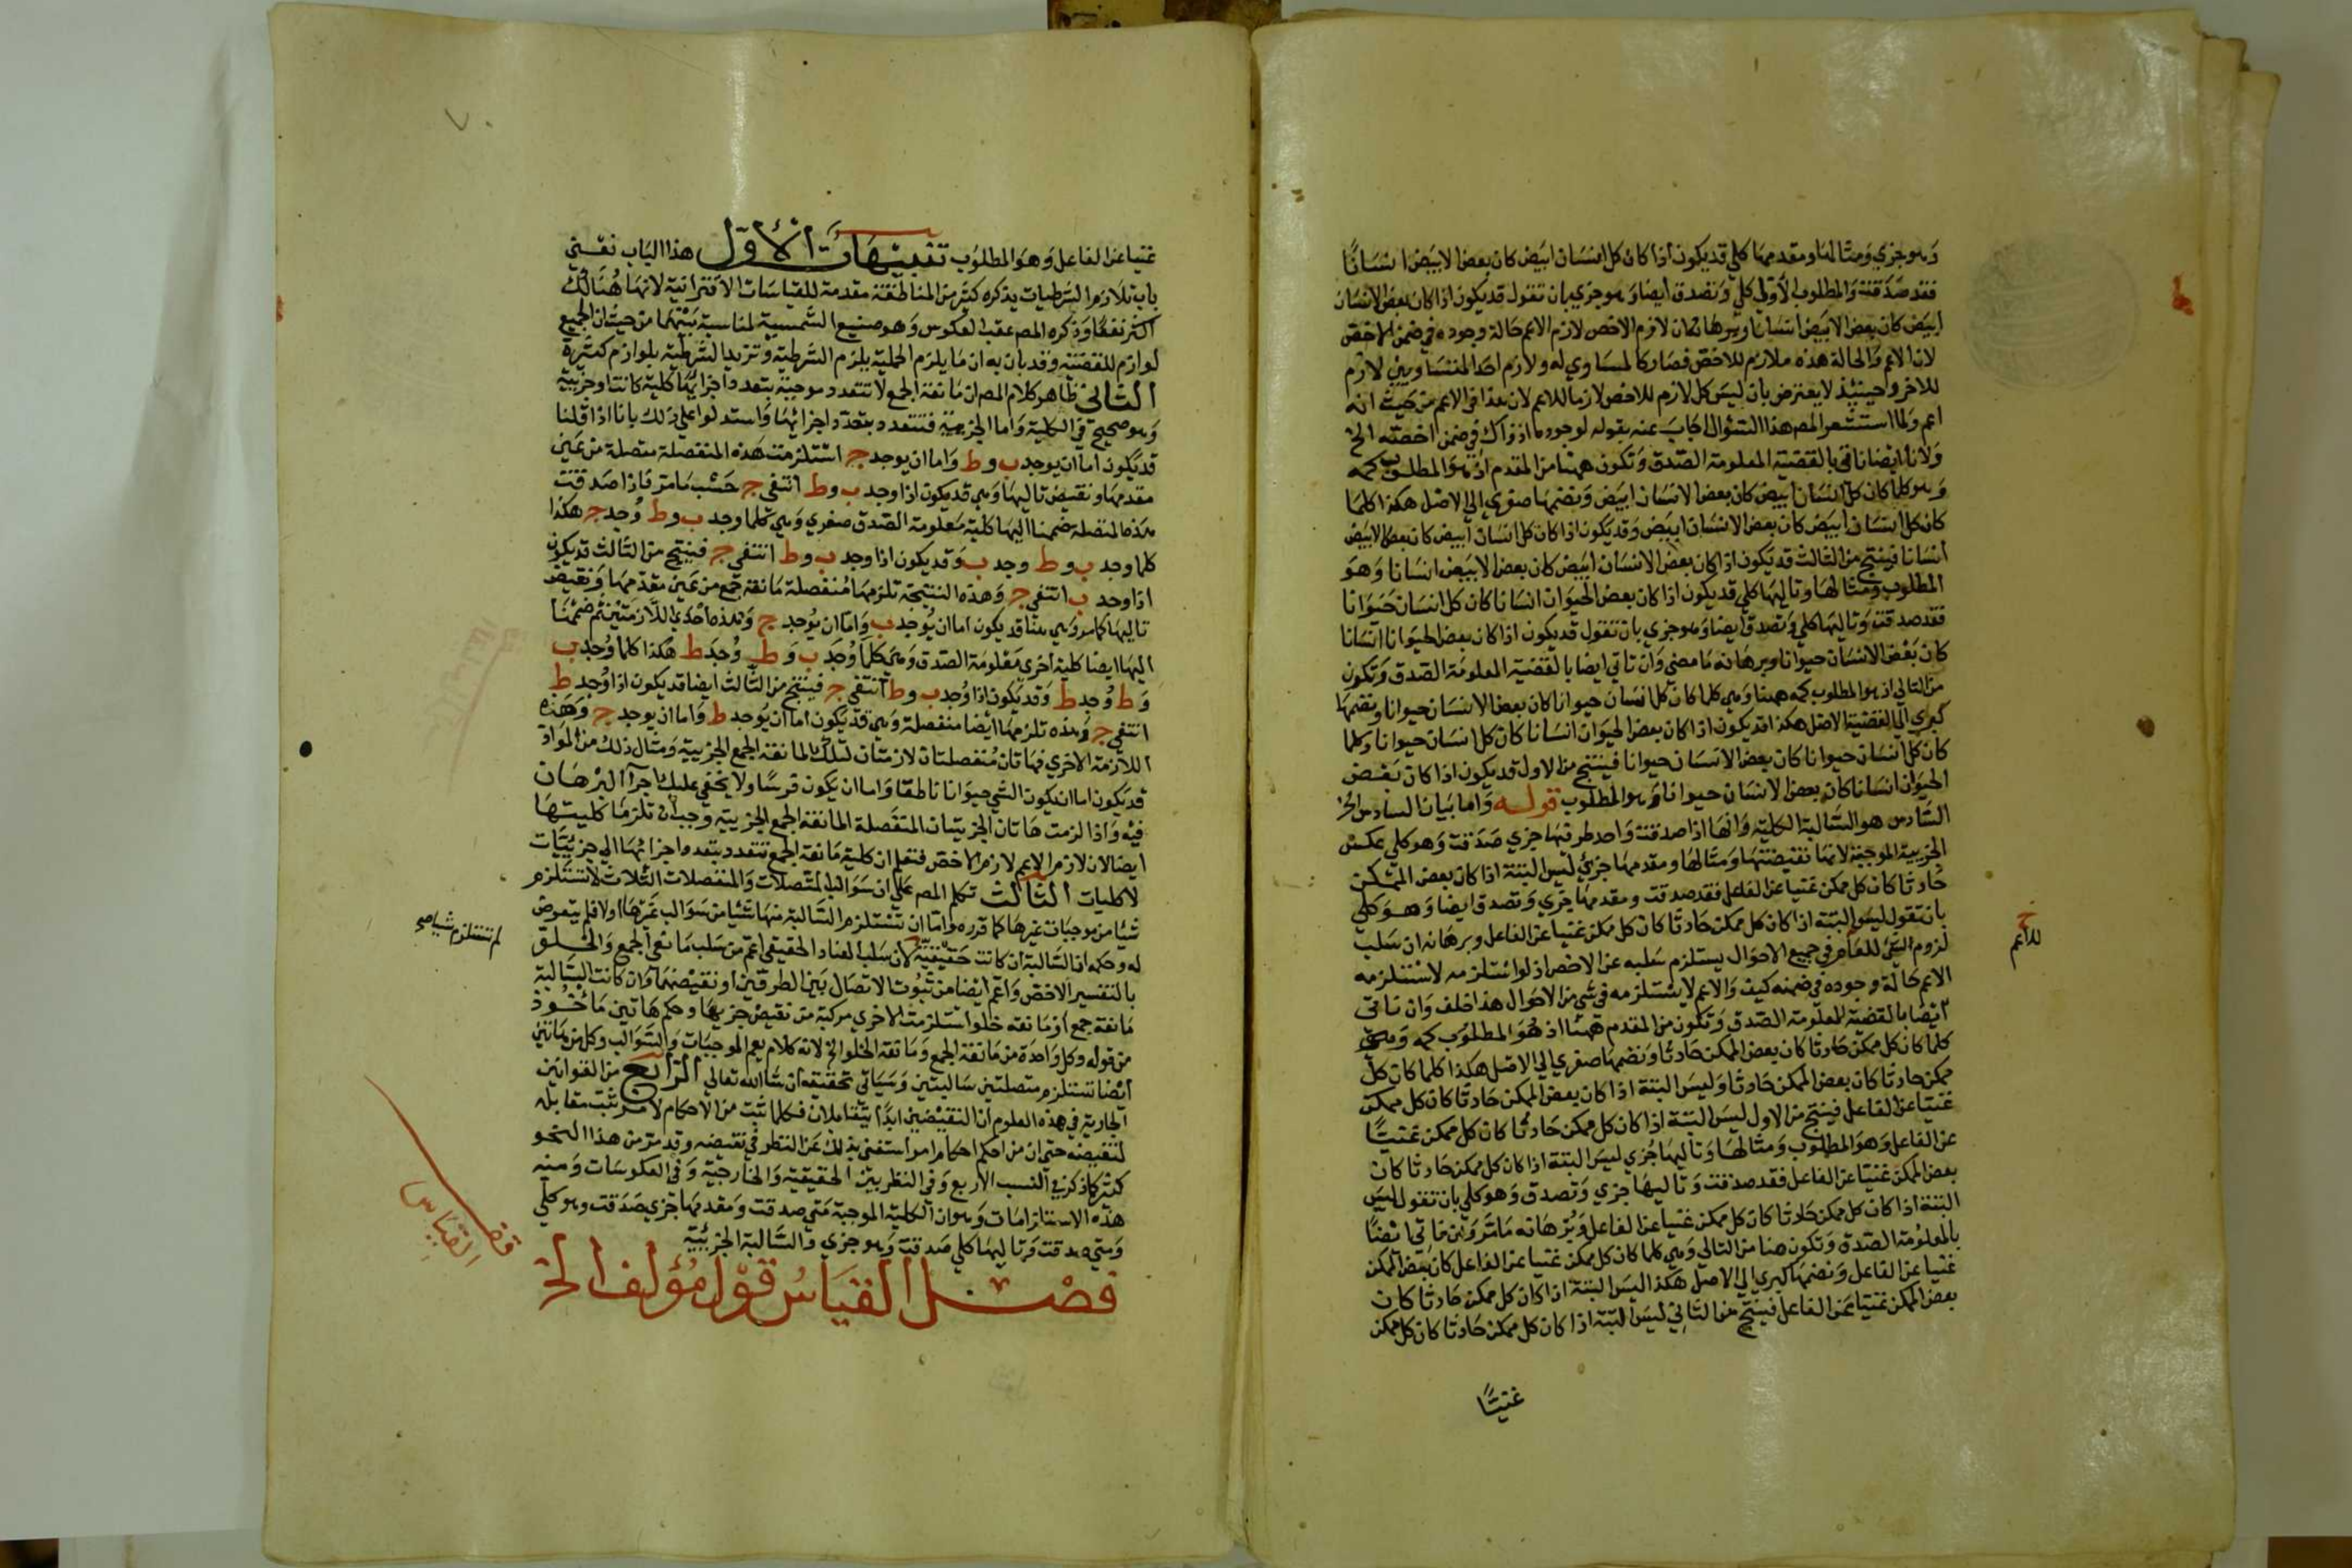 وهو جزي ومثالها ومقدمها كلي قد يكون اذا كان كل انسان ابيض كان بعض الابيض انسانا
فقد صدقت والمطلوب الاولي كلي وتصدق ايضا وهو جزي بان تقول قد يكون اذا كان بعض الانسان
ابيض كان بعض الابيض انسانا وبرهانه ان لازم الاخص لازم الاعم حالة وجوده في ضمن الاخص
لان الاعم والحالة هذه ملازم للاخص فصار كالمساوي له ولازم احد المتساويين لازم
للاخر وحينيذ لا يعترض بان ليس كل لازم للاخص لازما للاعم لان هذا في الاعم من حيث انه
اعم ولما استشعر المص هذا السؤال اجاب عنه بقوله لوجوده اذ ذاك في ضمن اخصه الخ
ولانا ايضا ناتي بالقضية المعلومة الصدق وتكون ههنا من المقدم اذ هو المطلوب كمه
وهو كلما كان كل انسان ابيض كان بعض الانسان ابيض ونضمها صغري الي الاصل هكذا كلما
كان كل انسان ابيض كان بعض الانسان ابيض وقد يكون اذا كان كل انسان ابيض كان بعض الابيض
انسانا فينتج من الثالث قد يكون اذا كان بعض الانسان ابيض كان بعض الابيض انسانا وهو
المطلوب ومثالها وتاليها كلي قد يكون اذا كان بعض الحيوان انسانا كان كل انسان حيوانا
فقد صدقت وتاليها كلي وتصدق ايضا وهو جزي بان تقول قد يكون اذا كان بعض الحيوان انسانا
كان بعض الانسان حيوانا وبرهانه ما مضي وان ناتي ايضا بالقضية المعلومة الصدق وتكون
من التالي اذ هو المطلوب كمه ههنا وهي كلما كان كل انسان حيوانا كان بعض الانسان حيوانا ونضمها
كبري الي القضية الاصل هكذا قد يكون اذا كان بعض الحيوان انسانا كان كل انسان حيوانا وكلما
كان كل انسان حيوانا كان بعض الانسان حيوانا فينتج من الاول قد يكون اذا كان بعض
الحيوان انسانا كان بعض الانسان حيوانا وهو المطلوب قوله واما بيان السادس الخ
السادس هو السالبة الكلية وانها اذا صدقت واحد طرفيها جزي صدقت وهو كلي عكس
الجزيية الموجبة لانها نقيضتها ومثالها ومقدمها جزي ليس البتة اذا كان بعض الممكن
حادثا كان كل ممكن غنيا عن الفاعل فقد صدقت ومقدمها جزي وتصدق ايضا وهو كلي
بان تقول ليس البتة اذا كان كل ممكن حادثا كان كل ممكن غنيا عن الفاعل وبرهانه ان سلب
لزوم الشي للعام في جميع الاحوال يستلزم سلبه عن الاخص اذ لو استلزمه لاستلزمه
الاعم حالة وجوده في ضمنه كيف والاعم لا يستلزمه في شي من الاحوال هذا خلف وان ناتي
ايضا بالقضية المعلومة الصدق وتكون من المقدم ههنا اذ هو المطلوب كمه وهي
كلما كان كل ممكن حادثا كان بعض الممكن حادثا ونضمها صغري الي الاصل هكذا كلما كان كل
ممكن حادثا كان بعض الممكن حادثا وليس البتة اذا كان بعض الممكن حادثا كان كل ممكن
غنيا عن الفاعل فينتج من الاول ليس البتة اذا كان كل ممكن حادثا كان كل ممكن غنيا
عن الفاعل وهو المطلوب ومثالها وتاليها جزي ليس البتة اذا كان كل ممكن حادثا كان
بعض الممكن غنيا عن الفاعل فقد صدقت وتاليها جزي وتصدق وهو كلي بان تقول ليس
البتة اذا كان كل ممكن حادثا كان كل ممكن غنيا عن الفاعل وبرهانه ما مر وبان ناتي ايضا
بالمعلومة الصدق وتكون هنا من التالي وهي كلما كان كل ممكن غنيا عن الفاعل كان بعض الممكن
غنيا عن الفاعل ونضمها كبري الي الاصل هكذا ليس البتة اذا كان كل ممكن حادثا كان
بعض الممكن غنيا عن الفاعل فينتج من الثاني ليس البتة اذا كان كل ممكن حادثا كان كل ممكن
غنيا
للاعم
غنيا عن الفاعل وهو المطلوب تنبيهات الاول هذا الباب نعني
باب تلازم الشرطيات يذكره كثير من المناطقة مقدمة للقياسات الاقترانية لانها هنالك
اكثر نفعا وذكره المص عقب العكوس وهو صنيع الشمسية لمناسبة بينهما من حيث ان الجميع
لوازم للقضية وقد بان به ان ما يلزم الحملية يلزم الشرطية وتزيد الشرطية بلوازم كثيرة
الثاني ظاهر كلام المص ان مانعة الجمع لا تتعدد موجبة بتعدد اجزايها كلية كانت او جزيية
وهو صحيح في الكلية واما الجزيية فتتعدد بتعدد اجزائها واستدلوا علي ذلك بانا اذا قلنا
قد يكون اما ان يوجد ب و ط واما ان يوجد ج استلزمت هذه المنفصلة متصلة من عين
مقدمها ونقيض تاليها وهي قد يكون اذا وجد ب و ط انتفي ج حسب ما مر فاذا صدقت
هذه المتصلة ضممنا اليها كلية معلومة الصدق صغري وهي كلما وجد ب و ط وجد ج هكذا
كلما وجد ب و ط وجد ب وقد يكون اذا وجد ب و ط انتفي ج فينتج من الثالث قد يكون
اذا وجد ب انتفي ج وهذه النتيجة تلزمها منفصلة مانعة جمع من عين مقدمها ونقيض
تاليها كما مر وهي هنا قد يكون اما ان يوجد ب واما ان يوجد ج وهذه احدي اللازمتين ثم ضممنا
اليها ايضا كلية اخري معلومة الصدق وهي كلما وجد ب و ط وجد ط هكذا كلما وجد ب
و ط وجد ط وقد يكون اذا وجد ب و ط انتفي ج فينتج من الثالث ايضا قد يكون اذا وجد ط
انتفي ج وهذه تلزمها ايضا منفصلة وهي قد يكون اما ان يوجد ط واما ان يوجد ج وهذه
اللازمة الاخري فهاتان منفصلتان لازمتان لتلك المانعة الجمع الجزيية ومثال ذلك من المواد
قد يكون اما ان يكون الشي حيوانا ناطقا واما ان يكون فرسا ولا يخفي عليك اجرا البرهان
فيه واذا لزمت هاتان الجزيتان المنفصلة المانعة الجمع الجزيية وجب ان تلزما كليتها
ايضا لان لازم الاعم لازم الاخص فتعلم ان كلية مانعة الجمع تتعدد بتعدد اجزائها الي جزئيات
لا كليات الثالث تكلم المص علي ان سوالب المتصلات والمنفصلات الثلاث لا تستلزم
شيا من موجبات غيرها كما قرره واما ان تستلزم السالبة منها شيئا من سوالب غيرها او لا فلم يتعرض
له وحكمه ان السالبة ان كانت حقيقية لان سلب العناد الحقيقي اعم من سلب مانعي الجمع والخلو
بالتفسير الاخص واعم ايضا من ثبوت الاتصال بين الطرفين او نقيضهما وان كانت السالبة
مانعة جمع او مانعة خلو استلزمت الاخري مركبة من نقيض جزيها وحكم هاتين ماخوذ
من قوله وكل واحدة من مانعة الجمع ومانعة الخلو الخ لانه كلام يعم الموجبات والسوالب وكل من هاتين
ايضا تستلزم متصلتين سالبتين وسياتي تحقيقه ان شا الله تعالي الرابع من القوانين
الجارية في هذه العلوم ان النقيضين ابدا يتقابلان فكلما ثبت من الاحكام لامر ثبت مقابله
لنقيضه حتي ان من احكم احكام امر استغني بذلك عن النظر في نقيضه وقد مر من هذا النحو
كثير كما ذكر في النسب الاربع وفي النظر بين الحقيقية والخارجية وفي العكوسات ومنه
هذه الاستلزامات وهو ان الكلية الموجبة متي صدقت ومقدمها جزي صدقت وهو كلي
ومتي صدقت وتاليها كلي صدقت وهو جزي والسالبة الجزيية
فصل القياس قول مؤلف الخ
لم تستلزم شيا صح
قف
القياس